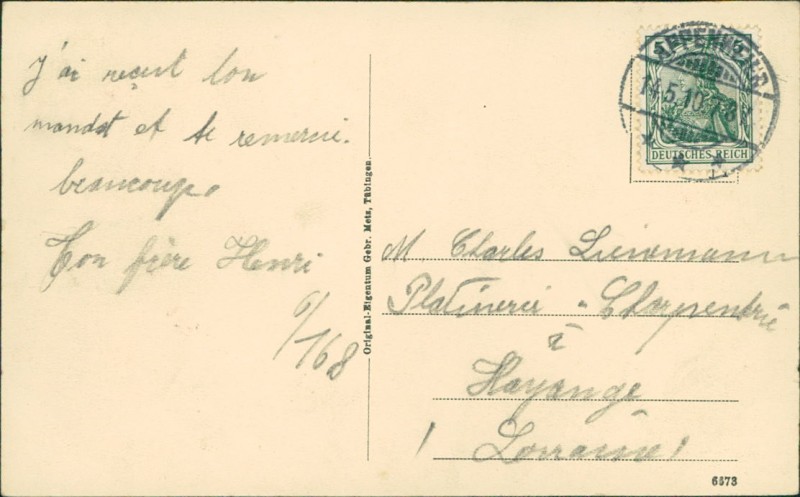 J'ai reçut ton
mandat et te remercie.
beaucoup.
Ton frère Henri
6/168
Original-Eigentum Gebr. Metz, Tübingen.
14.5.10
DEUTSCHES REICH
M. Charles
Platinerei - Charpentrie
à
Hayange
! Lorraine!
6573